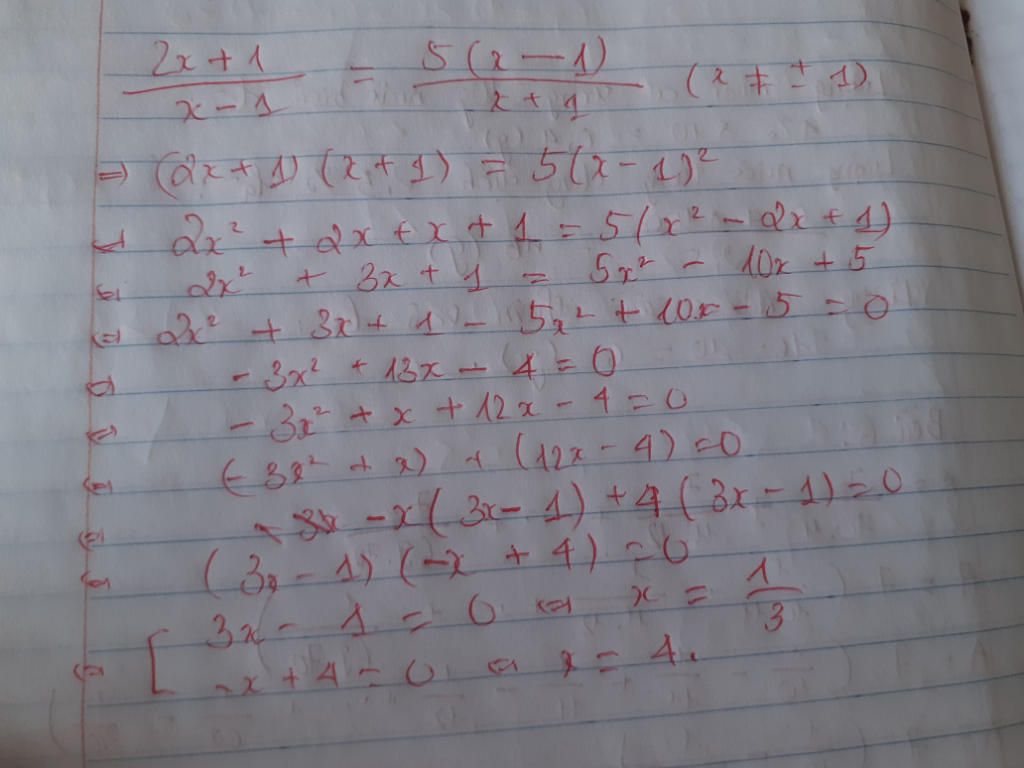 (2x + 1)/(x - 1) = 5(x - 1)/(x + 1) (x ≠ ± 1)
=> (2x + 1)(x + 1) = 5(x - 1)²
<=> 2x² + 2x + x + 1 = 5(x² - 2x + 1)
<=> 2x² + 3x + 1 = 5x² - 10x + 5
<=> 2x² + 3x + 1 - 5x² + 10x - 5 = 0
<=> - 3x² + 13x - 4 = 0
<=> - 3x² + x + 12x - 4 = 0
<=> (- 3x² + x) + (12x - 4) = 0
<=> - x(3x - 1) + 4(3x - 1) = 0
<=> (3x - 1)(-x + 4) = 0
<=> [ 3x - 1 = 0 <=> x = 1/3
-x + 4 = 0 <=> x = 4.